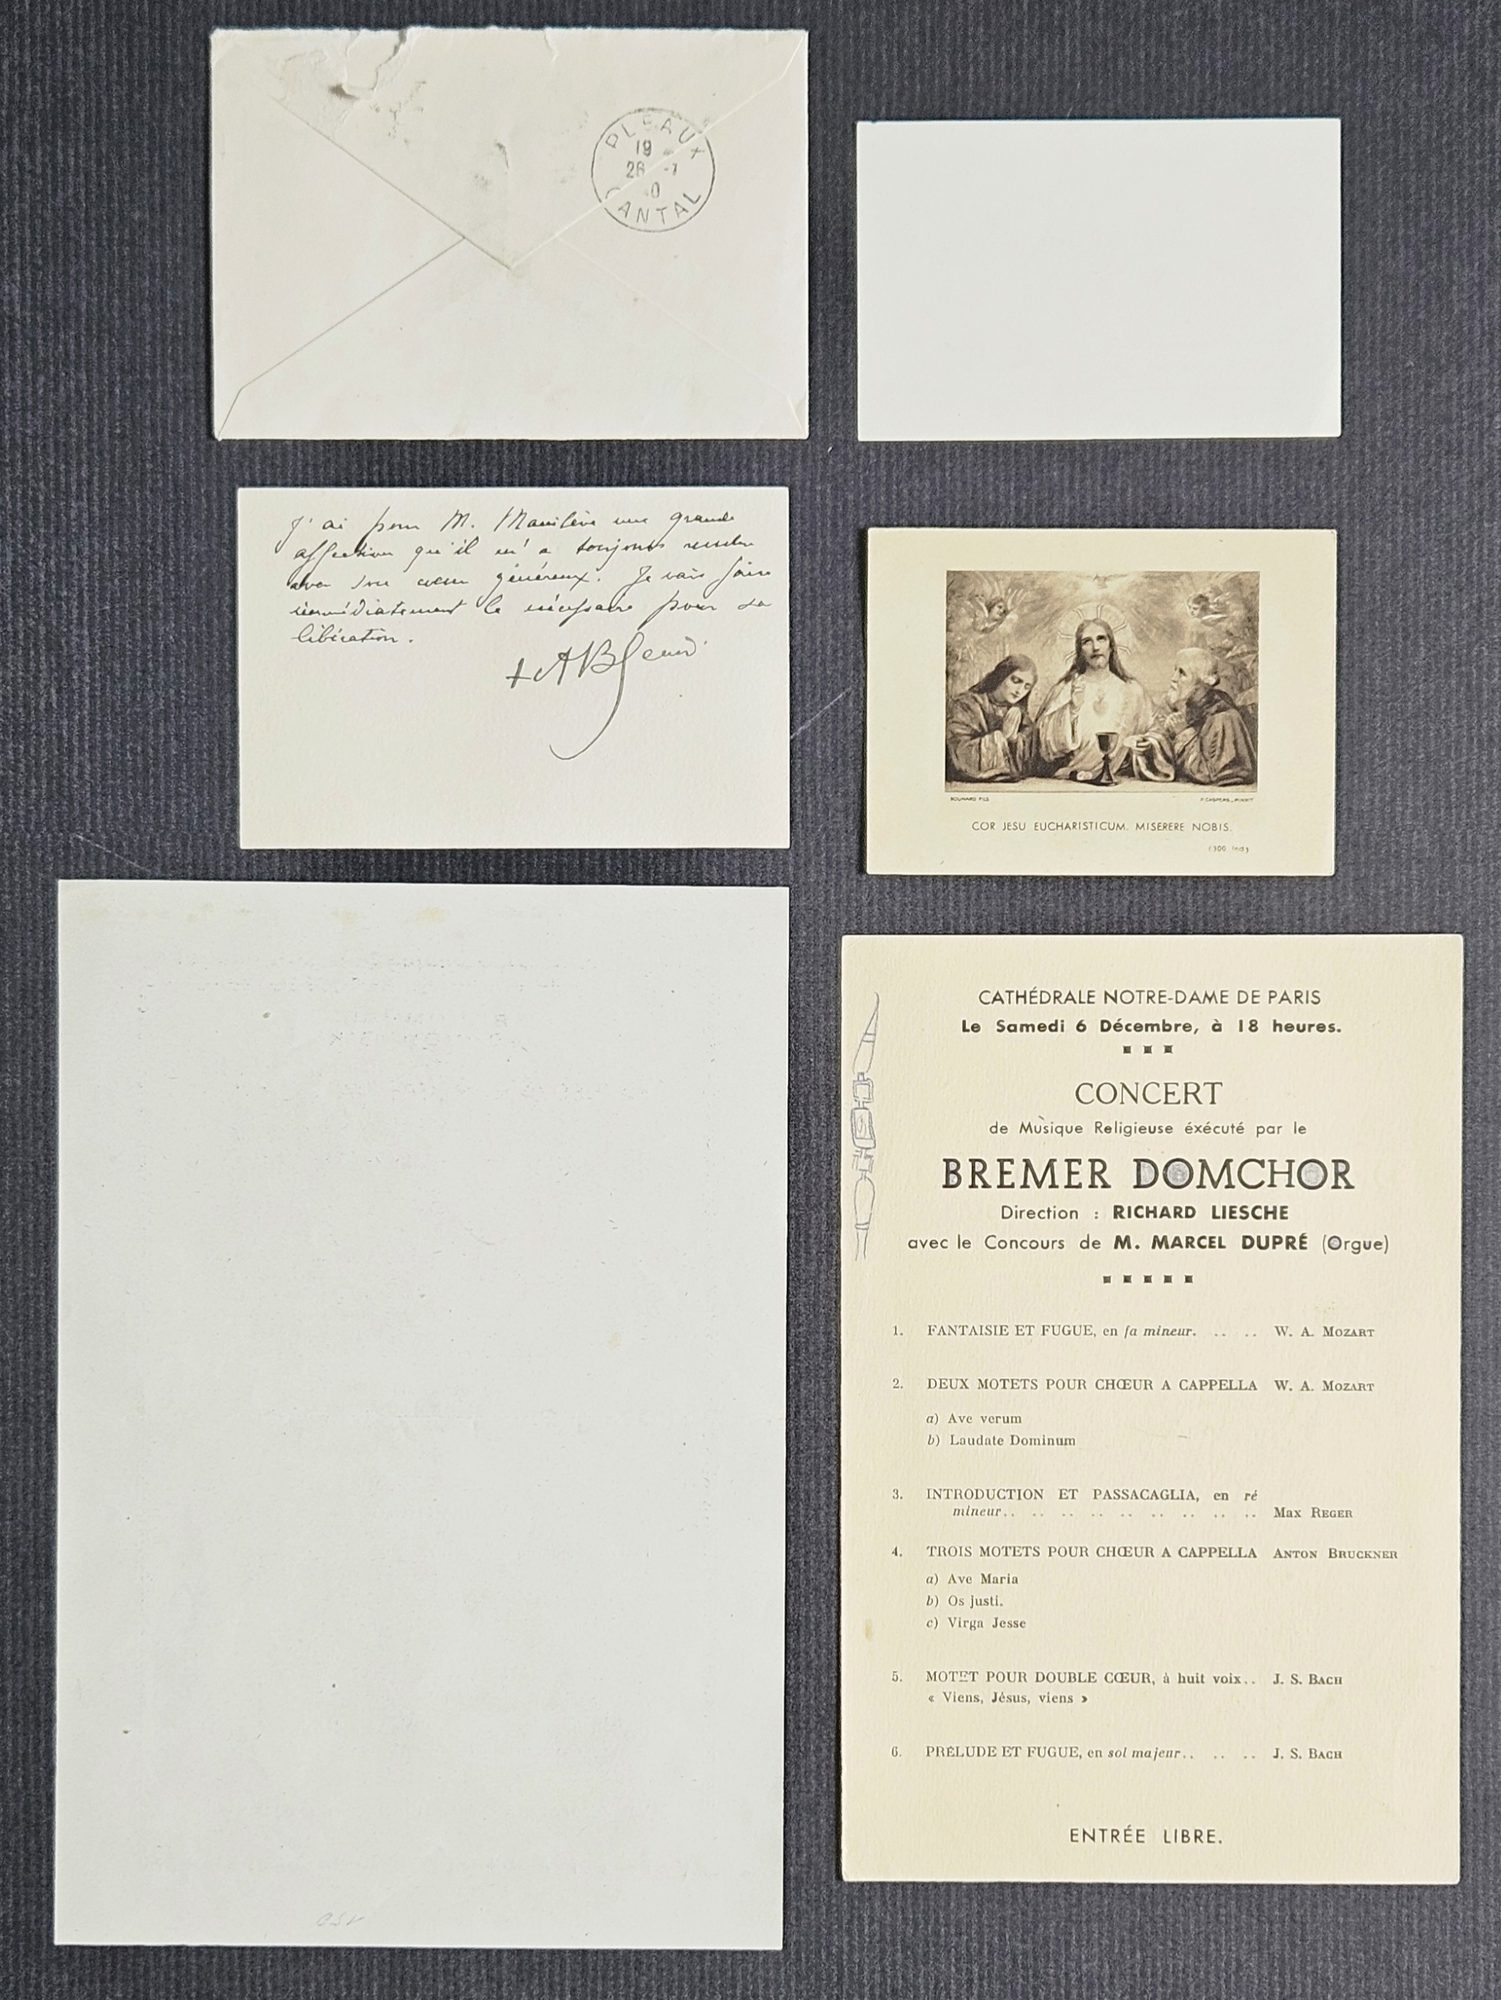 PLEAUX
19
26 -7
0
CANTAL
J'ai pour M. une grande
affection qu'il m'a toujours rendue
avec son cœur généreux. Je vais faire
immédiatement le nécessaire pour sa
libération.
COR JESU EUCHARISTICUM. MISERERE NOBIS.
BOUMARD FILS
CATHÉDRALE NOTRE-DAME DE PARIS
Le Samedi 6 Décembre, à 18 heures.
CONCERT
de Musique Religieuse éxécuté par le
BREMER DOMCHOR
Direction : RICHARD LIESCHE
avec le Concours de M. MARCEL DUPRÉ (Orgue)
1. FANTAISIE ET FUGUE, en fa mineur. .. .. W. A. MOZART
2. DEUX MOTETS POUR CHŒUR A CAPPELLA W. A. MOZART
a) Ave verum
b) Laudate Dominum
3. INTRODUCTION ET PASSACAGLIA, en ré
mineur.. .. .. .. .. .. .. .. .. MAX REGER
4. TROIS MOTETS POUR CHŒUR A CAPPELLA ANTON BRUCKNER
a) Ave Maria
b) Os justi.
c) Virga Jesse
5. MOTET POUR DOUBLE CŒUR, à huit voix.. J. S. BACH
« Viens, Jésus, viens »
6. PRÉLUDE ET FUGUE, en sol majeur.. .. .. J. S. BACH
ENTRÉE LIBRE.